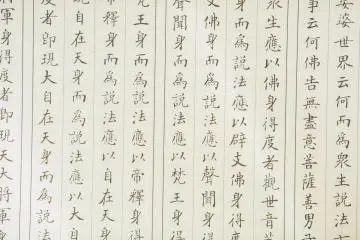 娑婆世界云何而為衆生說法方
事云何佛告無盡意菩薩善男子
衆生應以佛身得度者觀世音菩
身而為說法應以辟支佛身得度
支佛身而為說法應以聲聞身得
聲聞身而為說法應以梵王身得
梵王身而為說法應以帝釋身得
帝釋身而為說法應以自在天身
現自在天身而為說法應以大自
度者即現大自在天身而為說法
將軍身得度者即現天大將軍身